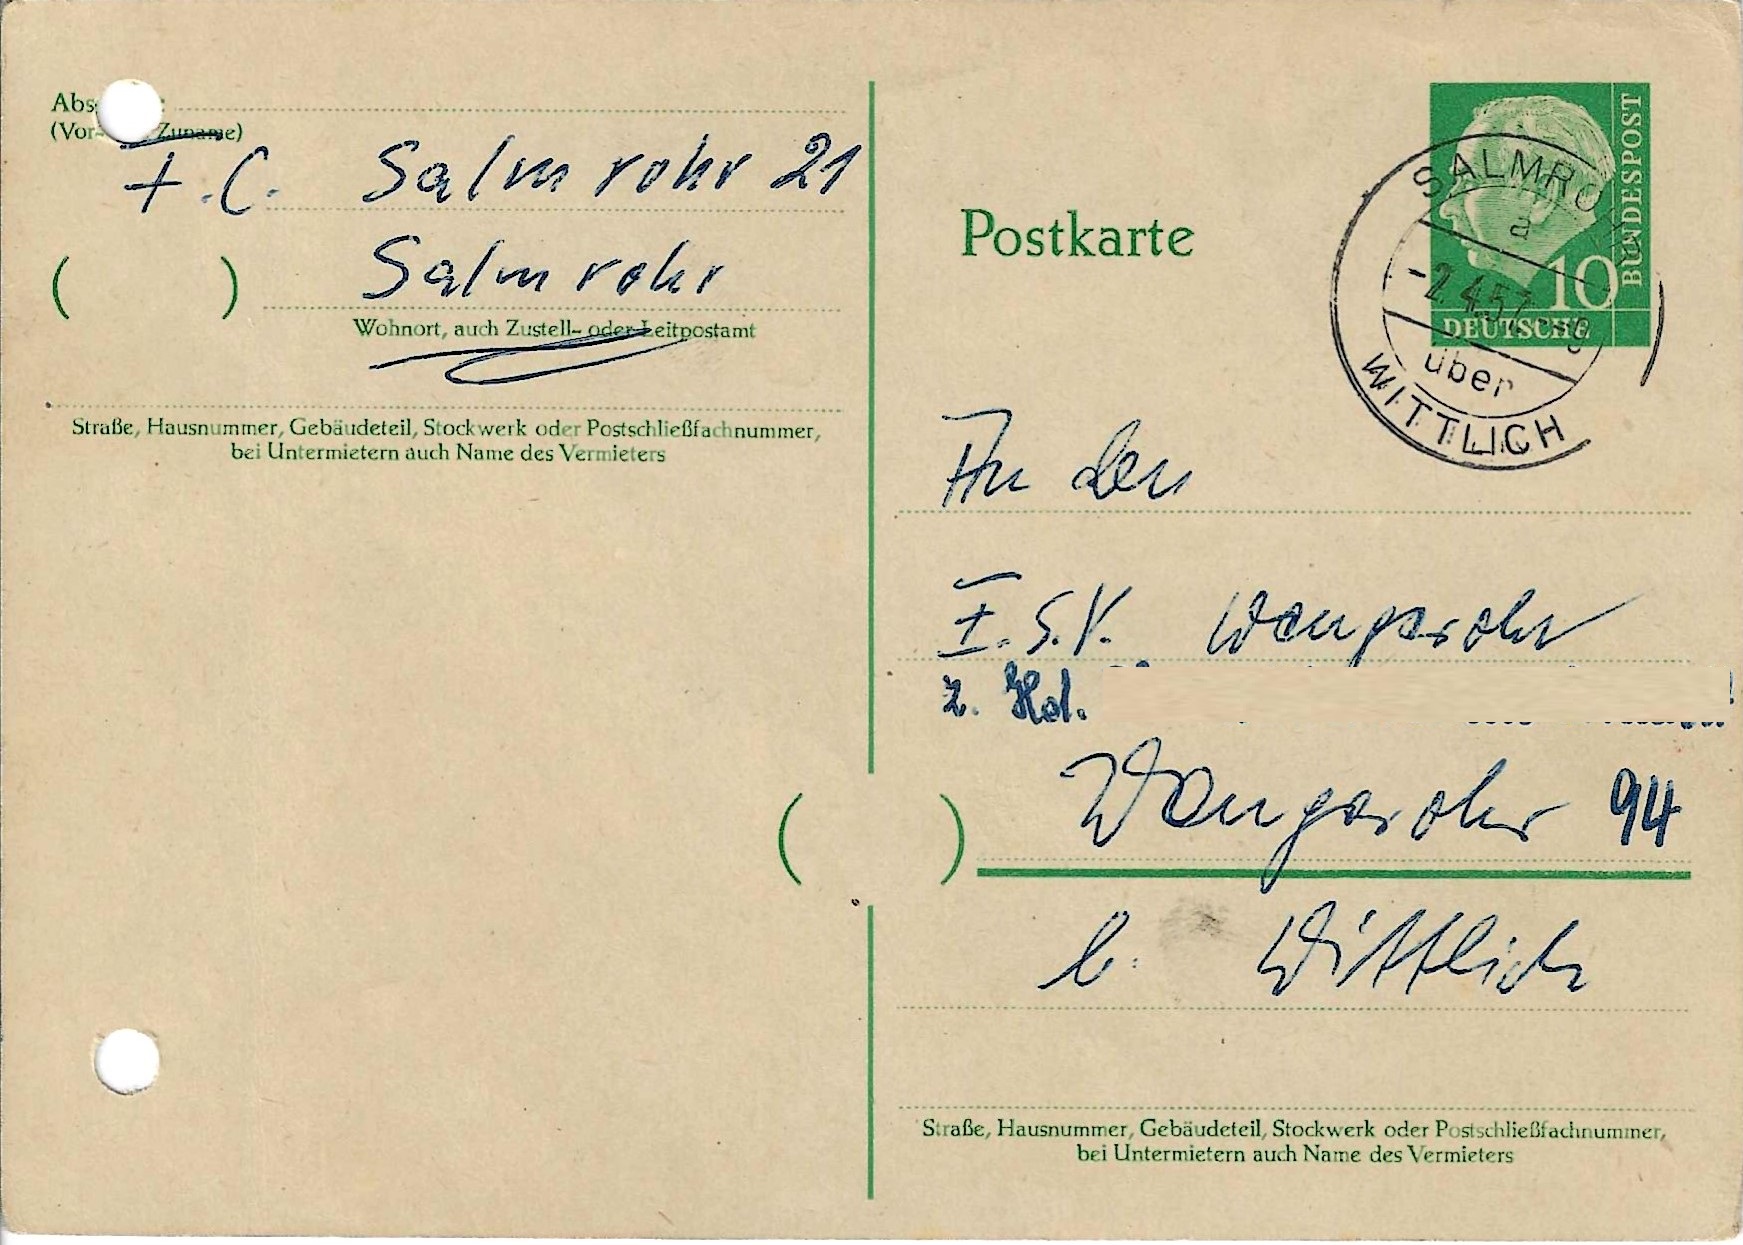 (Vor- Zuname)
F.C. Salmrohr 21
Salmrohr
( )
Wohnort, auch Zustell- oder Leitpostamt
Straße, Hausnummer, Gebäudeteil, Stockwerk oder Postschließfachnummer,
bei Untermietern auch Name des Vermieters
Postkarte
BUNDESPOST
10
DEUTSCHE
SALMROHR
a
-2.4.57
über
WITTLICH
An den
F.S.V. Wengerohr
z. Hd.
Wengerohr 94
( )
b. Wittlich
Straße, Hausnummer, Gebäudeteil, Stockwerk oder Postschließfachnummer,
bei Untermietern auch Name des Vermieters